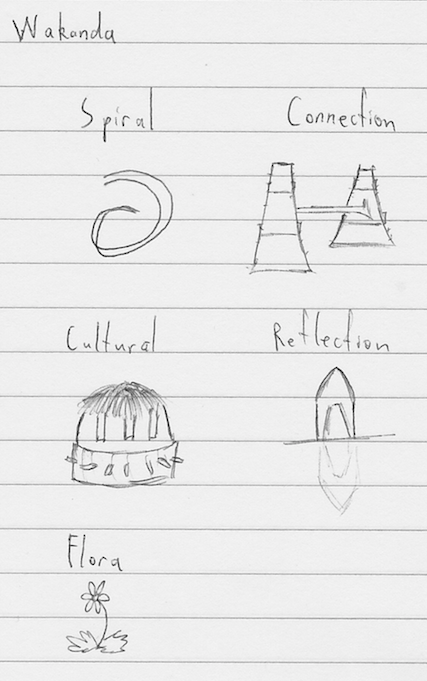 Wakanda
Spiral
Connection
Cultural
Reflection
Flora